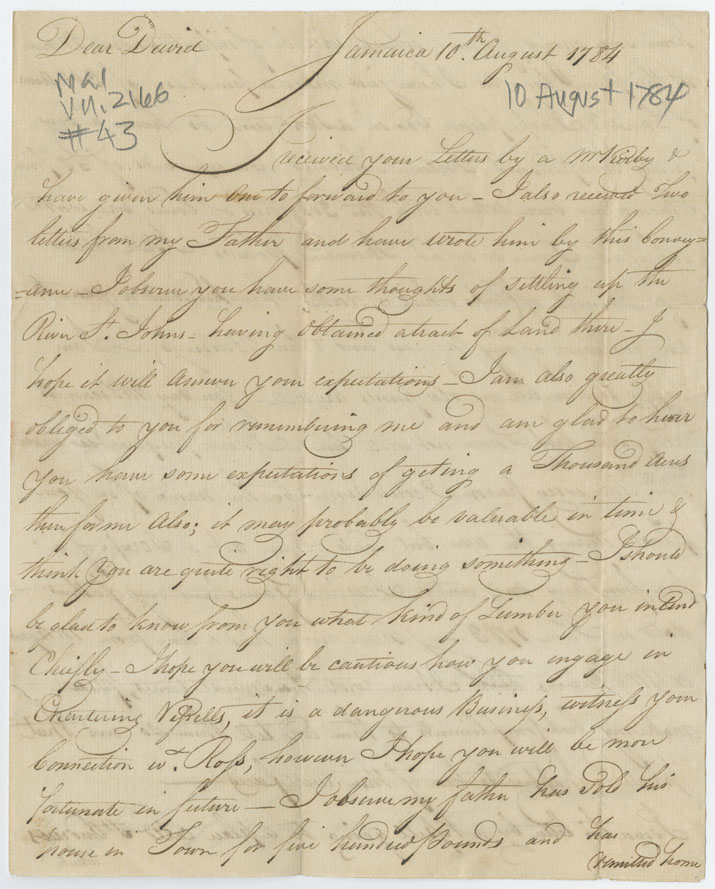 Dear David Jamaica 10th. August 1784
Mal
VII. 2166
#43
10 August 1784
I received your Letters by a Mr Kirby &
have given him one to forward to you – I also received Two
letters from my Father and have wrote him by this Convey=
=ance – I observe you have some thoughts of settling up the
River St. Johns – having obtained a tract of Land there – I
hope it will answer your expectations – I am also greatly
obliged to you for remembering me and am glad to hear
you have some expectations of geting a Thousand acres
there for me also; it may probably be valuable in time &
think you are quite right to be doing something – I should
be glad to know from you what kind of Lumber you intend
Chiefly – I hope you will be cautious how you engage in
Chartering Vessells, it is a dangerous Business, witness your
Connection wt. Ross, however I hope you will be more
fortunate in future – I observe my father has sold his
house in Town for five hundred Pounds and has
remitted home